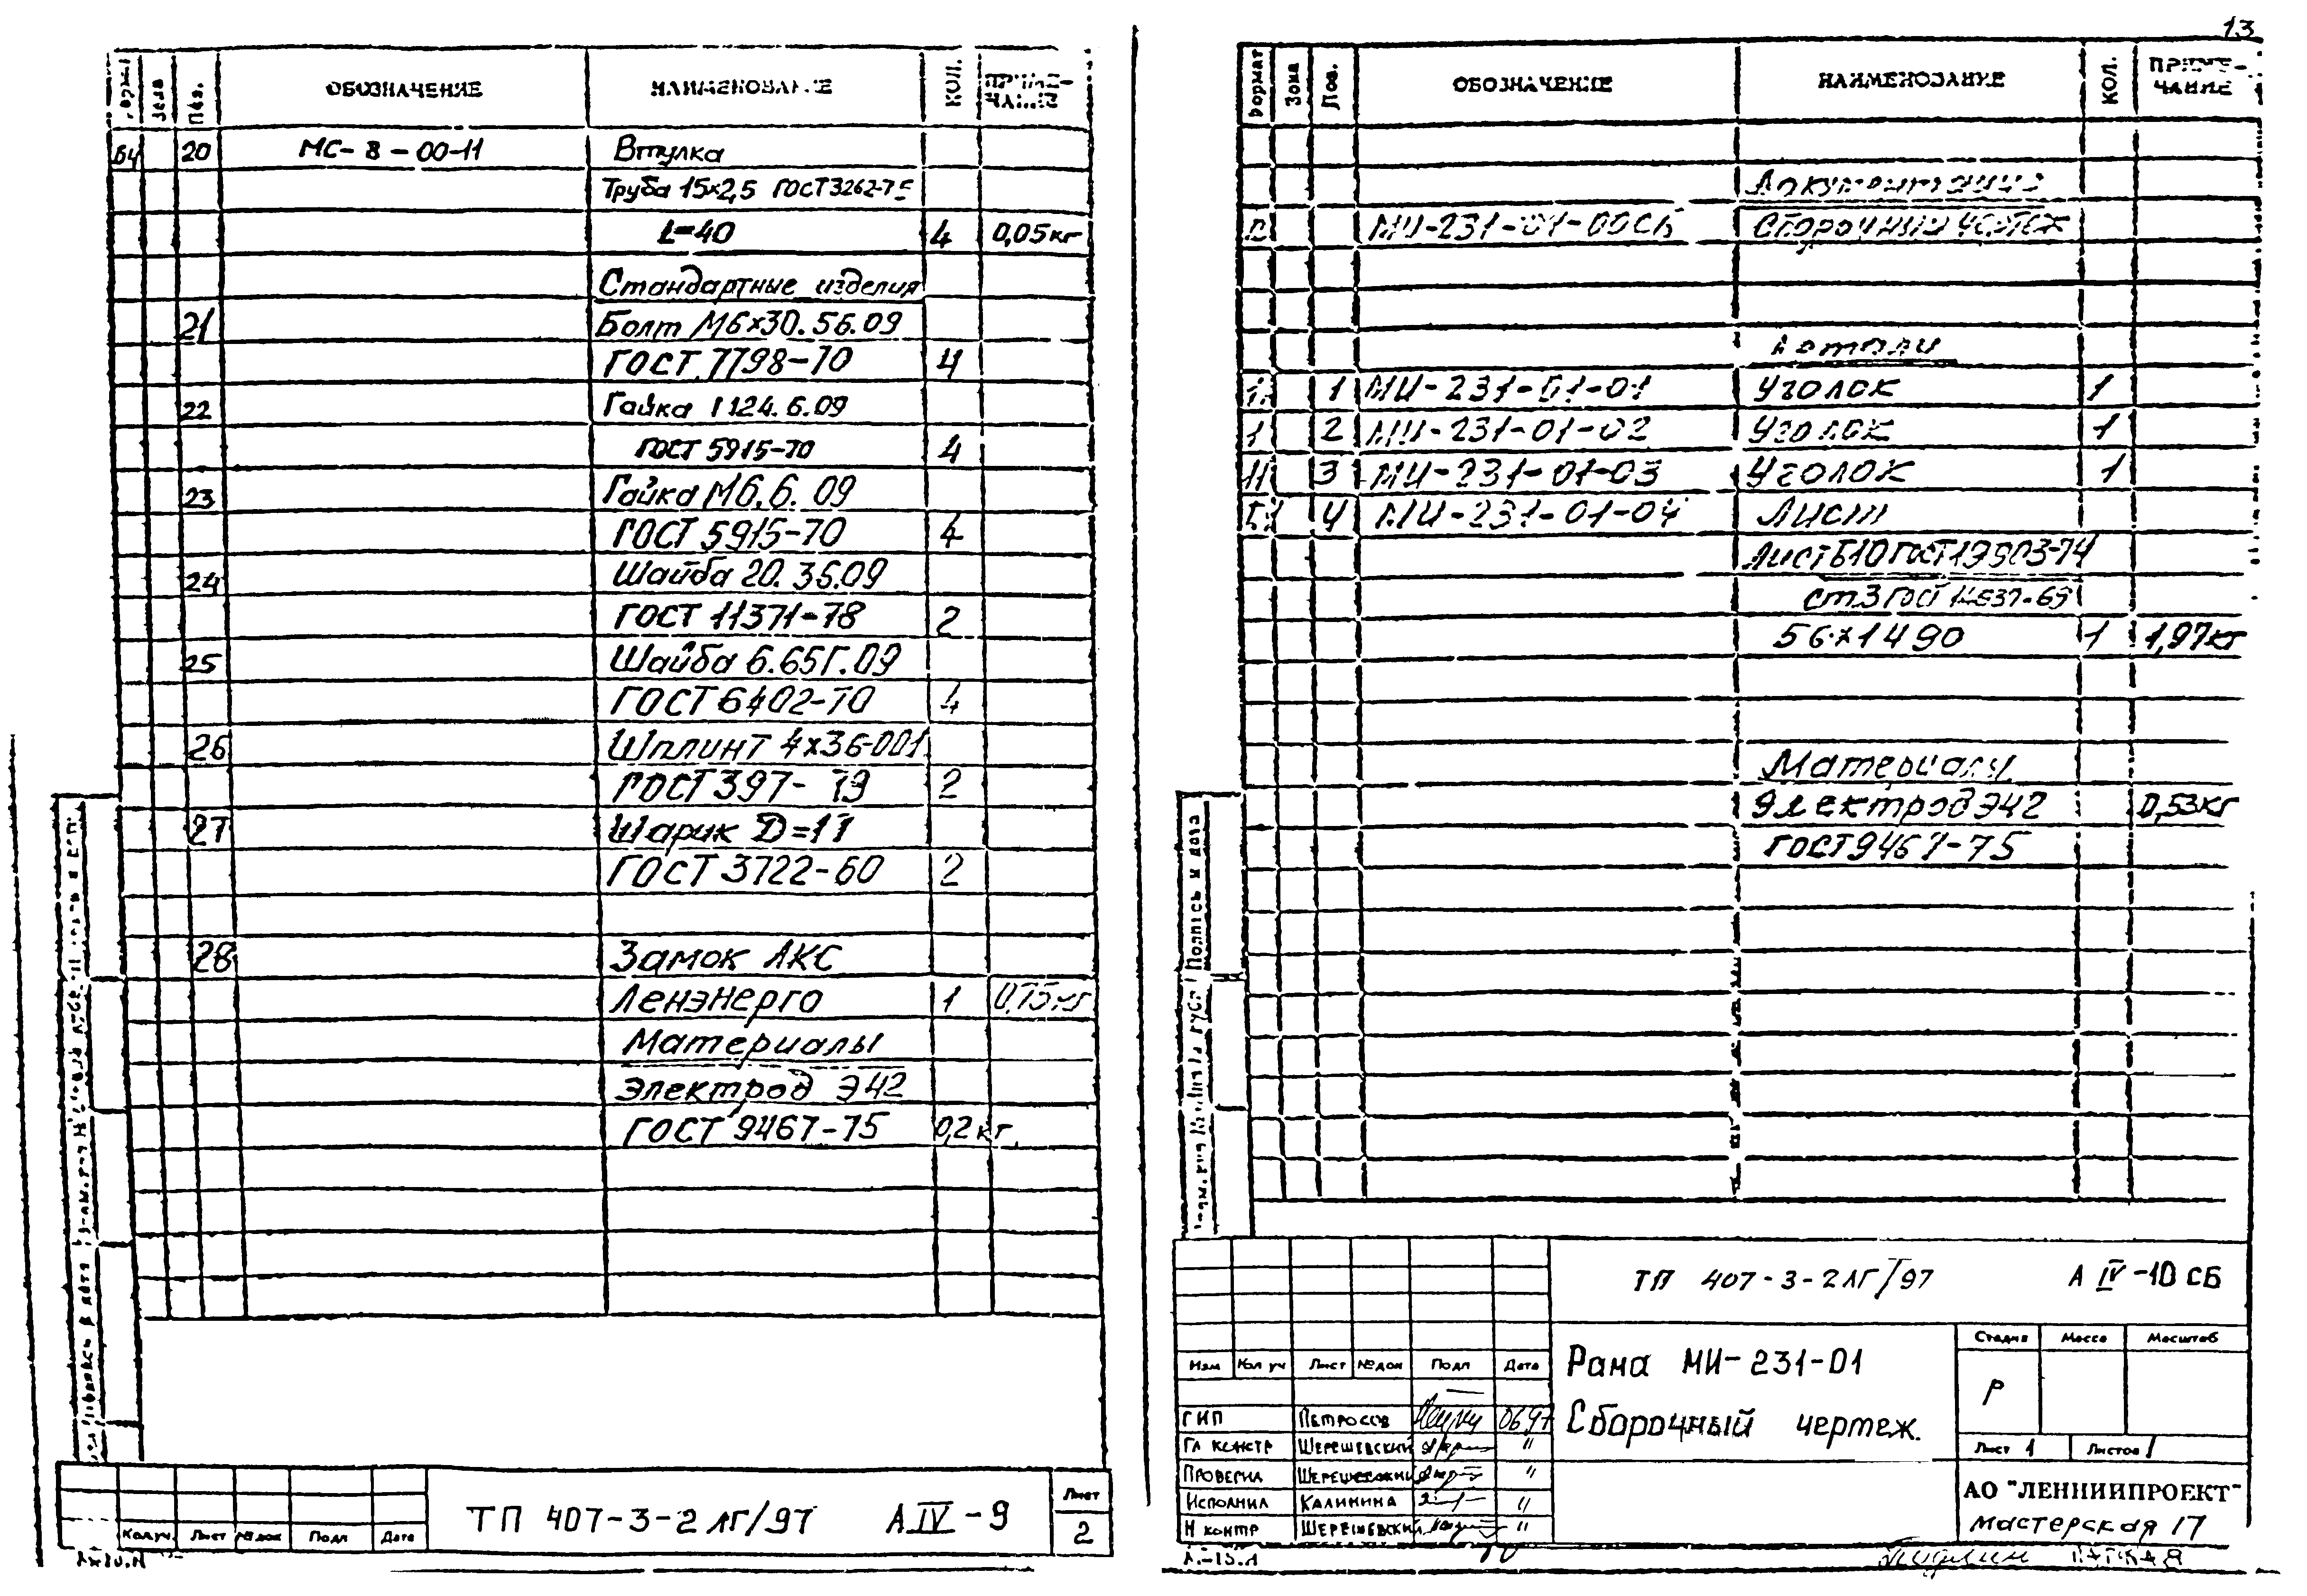 13
Зона Поз. ОБОЗНАЧЕНИЕ НАИМЕНОВАНИЕ КОЛ. ПРИМЕ-
ЧАНИЕ
БЧ 20 МС-8-00-11 Втулка
Труба 15×2,5 ГОСТ 3262-75
L=40 4 0,05кг
Стандартные изделия
21 Болт М6×30.56.09
ГОСТ 7798-70 4
22 Гайка 1М24.6.09
ГОСТ 5915-70 4
23 Гайка М6.6.09
ГОСТ 5915-70 4
24 Шайба 20.36.09
ГОСТ 11371-78 2
25 Шайба 6.65Г.09
ГОСТ 6402-70 4
26 Шплинт 4×36-001
ГОСТ 397-79 2
27 Шарик D=11
ГОСТ 3722-60 2
28 Замок ЛКС
Ленэнерго 1 0,75кг
Материалы
Электрод Э42
ГОСТ 9467-75 0,2кг.
Кол.уч. Лист №док Подп Дата
ТП 407-3-2лг/97 А IV-9
Лист
2
Формат Зона Поз. ОБОЗНАЧЕНИЕ НАИМЕНОВАНИЕ КОЛ. ПРИМЕ-
ЧАНИЕ
Документация
МИ-231-01-00СБ Сборочный чертеж
Детали
1 МИ-231-01-01 Уголок 1
2 МИ-231-01-02 Уголок 1
3 МИ-231-01-03 Уголок 1
БЧ 4 МИ-231-01-04 Лист
Лист Б10 ГОСТ 19903-74
ст.3 ГОСТ 14637-69
56×1490 1 1,97кг
Материалы
Электрод Э42 0,53кг
ГОСТ 9467-75
Подпись и дата
ТП 407-3-2ЛГ/97 А IV-10 СБ
Изм Кол уч Лист №док Подп Дата
Рама МИ-231-01
Сборочный чертеж.
Стадия Масса Масштаб
Р
Лист 1 Листов 1
ГИП Петросов 06.97
Гл констр Шерешевский "
Проверил Шерешевский "
Исполнил Калинина "
Н контр Шерешевский "
АО "ЛЕННИИПРОЕКТ"
мастерская 17